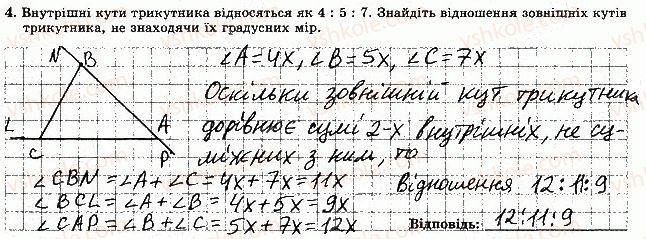 4. Внутрішні кути трикутника відносяться як 4 : 5 : 7. Знайдіть відношення зовнішніх кутів
трикутника, не знаходячи їх градусних мір.
N
B
L
C
A
P
∠A=4x, ∠B=5x, ∠C=7x
Оскільки зовнішній кут трикутника
дорівнює сумі 2-х внутрішніх, не су-
міжних з ним, то
∠CBN=∠A+∠C=4x+7x=11x
∠BCL=∠A+∠B=4x+5x=9x
∠CAP=∠B+∠C=5x+7x=12x
Відношення 12:11:9
Відповідь: 12:11:9